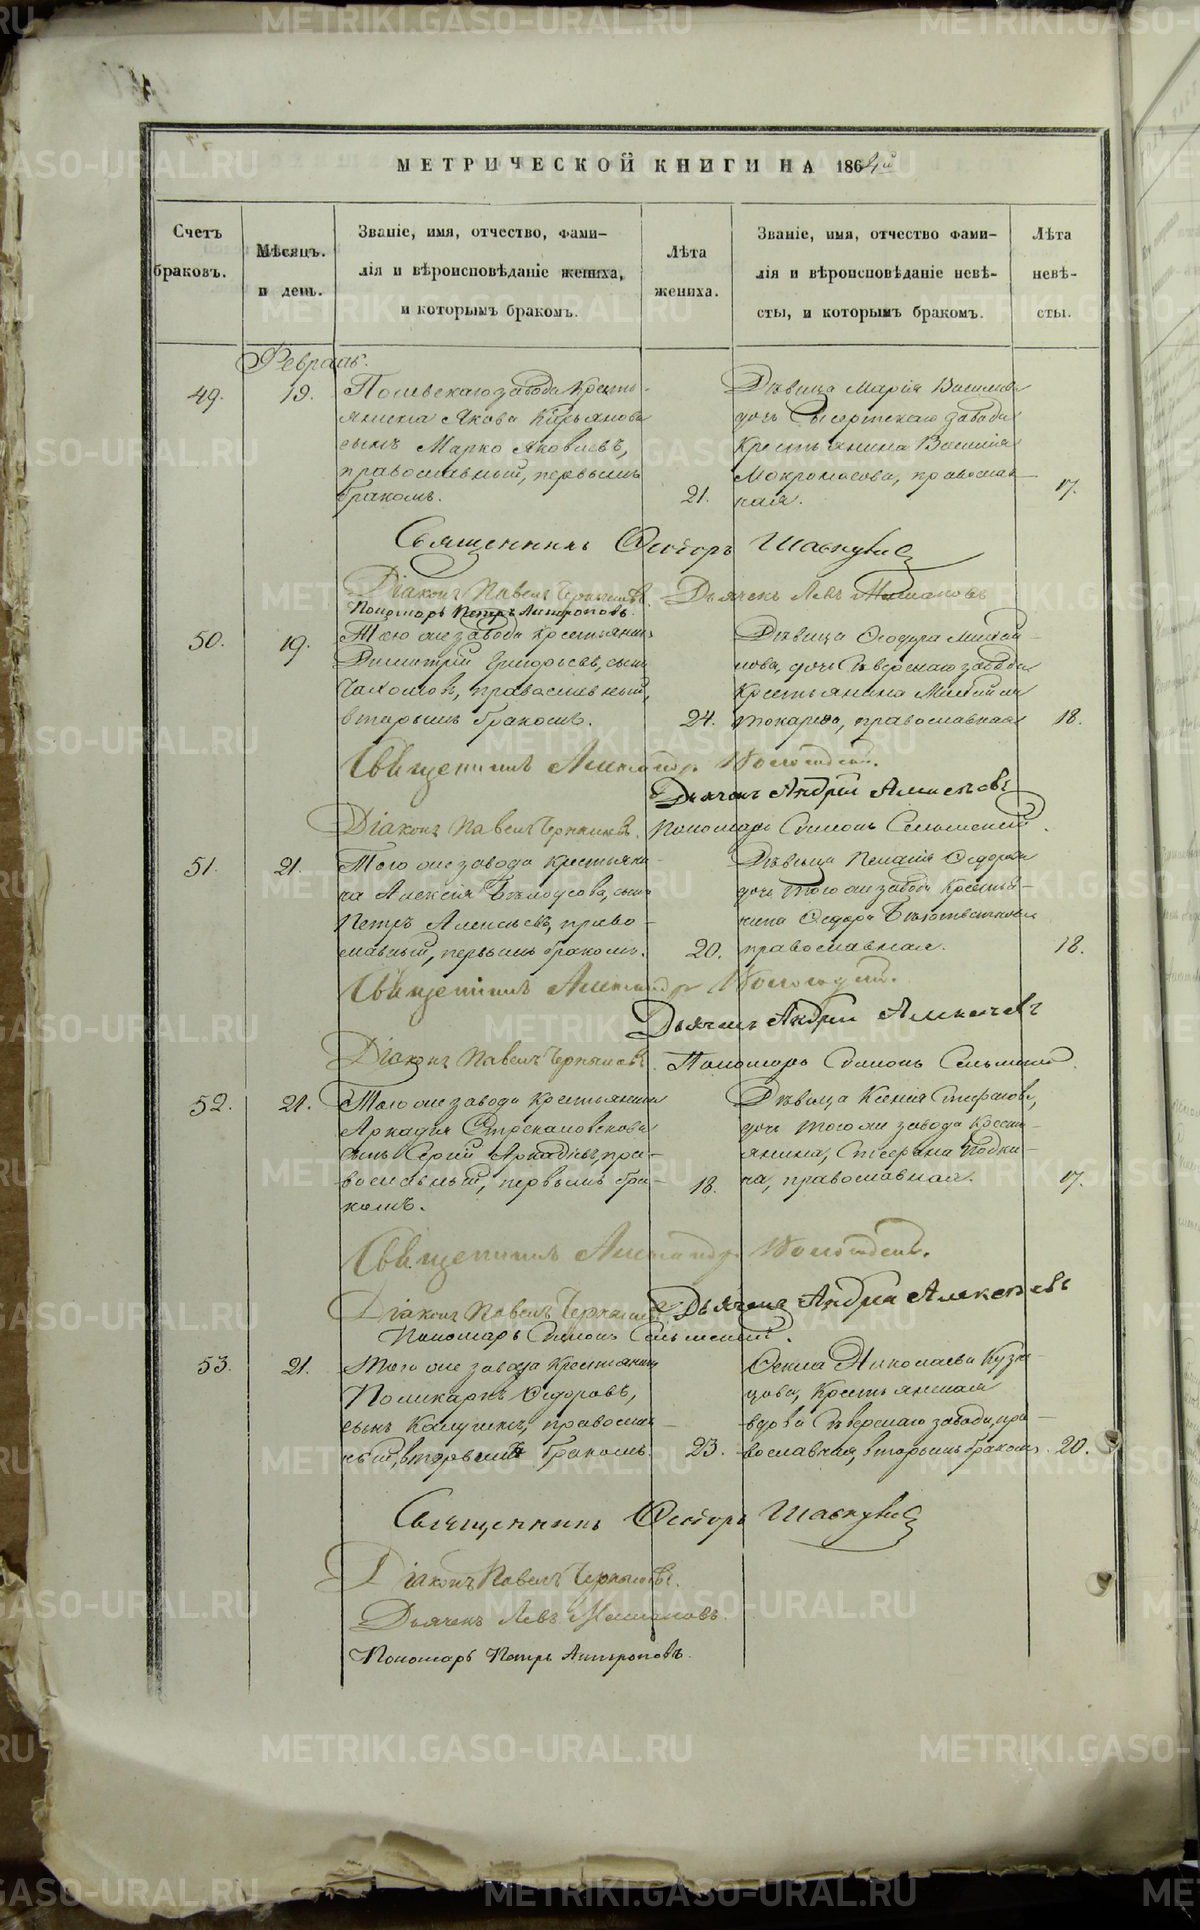 МЕТРИЧЕСКОЙ КНИГИ НА 1864й
Счетъ браковъ.
Мѣсяцъ. и день.
Званіе, имя, отчество, фами-
лія и вѣроисповѣданіе жениха,
и которымъ бракомъ.
Лѣта жениха.
Званіе, имя, отчество фами-
лія и вѣроисповѣданіе невѣ-
сты, и которымъ бракомъ.
Лѣта невѣ-
сты.
Февраль.
49.
19.
Полевскаго завода кресть-
янина Якова Кирьянова
сынъ Марко Яковлевъ,
православный, первымъ
бракомъ.
21.
Дѣвица Марія Васильева
дочь Сысертскаго завода
крестьянина Василія
Мокроносова, православ-
ная.
17.
Священникъ Ѳеодоръ
Діаконъ Павелъ Чернышевъ. Дьячекъ Левъ
Пономарь Петръ Антроповъ.
50.
19.
Того же завода крестьянинъ
Димитрій Григорьевъ, сынъ
православный,
вторымъ бракомъ.
24.
Дѣвица Ѳеодора Михай-
лова, дочь Сѣверскаго завода
крестьянина Михаила
Токарева, православная
18.
Священникъ Александръ
Дьячекъ Андрей Алексѣевъ
Діаконъ Павелъ Чернышевъ. Пономарь Симонъ
51.
21.
Того же завода крестьяни-
на Алексѣя Бѣлоусова, сынъ
Петръ Алексѣевъ, право-
славный, первымъ бракомъ.
20.
Дѣвица Пелагія Ѳедорова
дочь того же завода крестья-
нина Ѳедора
православная.
18.
Священникъ Александръ
Дьячекъ Андрей Алексѣевъ
Діаконъ Павелъ Чернышевъ. Пономарь Симонъ
52.
21.
Того же завода крестьянина
Аркадія
сынъ Сергій Аркадіевъ, пра-
вославный, первымъ бра-
комъ.
18.
Дѣвица Ксенія Стефанова,
дочь того же завода кресть-
янина, Стефана
православная.
17.
Священникъ Александръ
Діаконъ Павелъ Чернышевъ Дьячекъ Андрей Алексѣевъ
Пономарь Симонъ
53.
21.
Того же завода крестьянинъ
Поликарпъ Ѳедоровъ,
сынъ православ-
ный, вторымъ бракомъ.
23.
Николаева Кузне-
цова, крестьянская
вдова Сѣверскаго завода, пра-
вославная, вторымъ бракомъ.
20.
Священникъ Ѳеодоръ
Діаконъ Павелъ Чернышевъ.
Дьячекъ Левъ
Пономарь Петръ Антроповъ.
METRIKI.GASO-URAL.RU